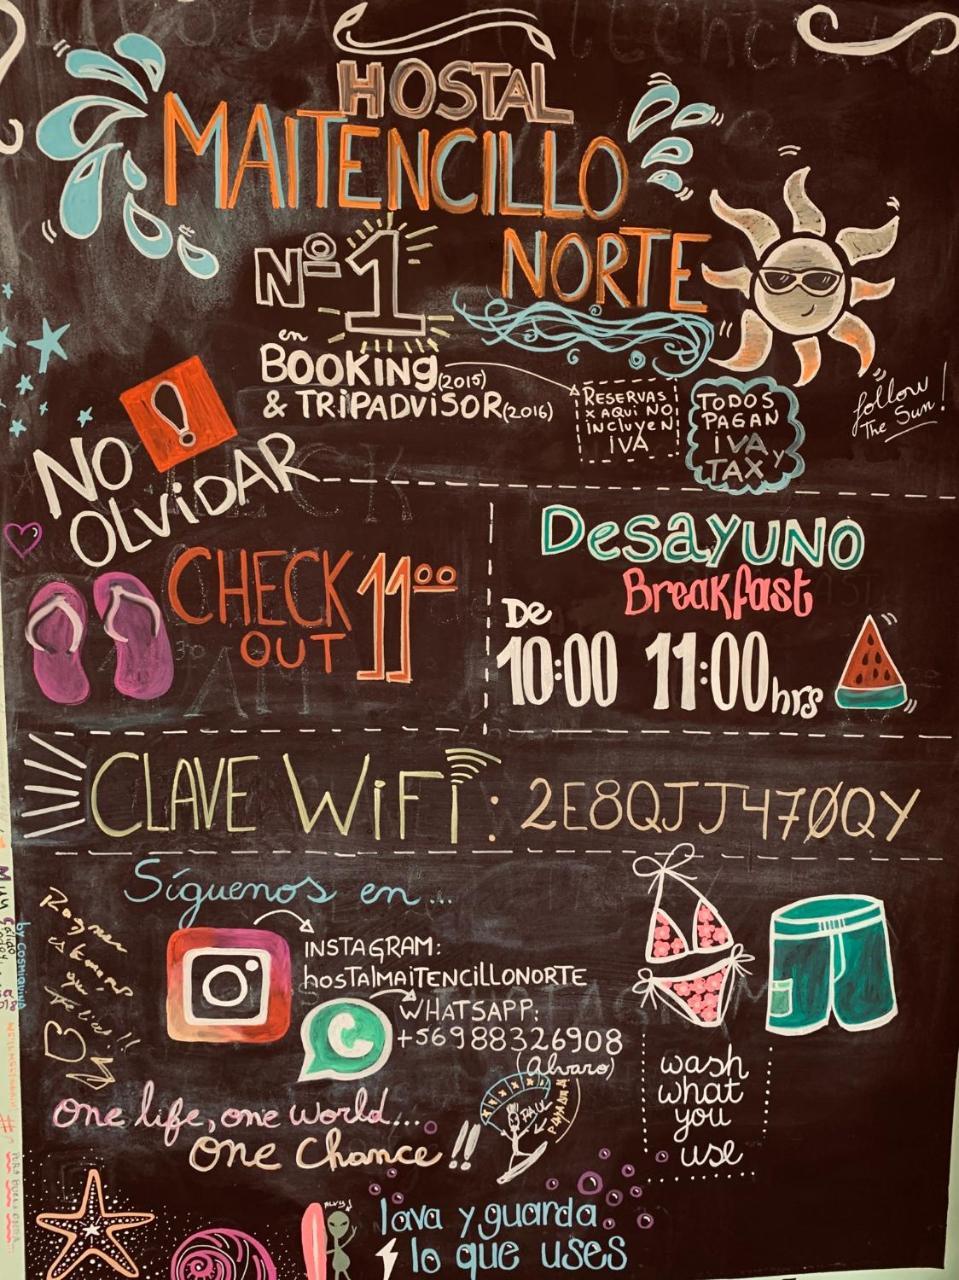 HOSTAL
MAITENCILLO
NORTE
Nº1
en
BOOKING (2015)
& TRIPADVISOR (2016)
RESERVAS
x AQUI NO
INCLUYEN
IVA
TODOS
PAGAN
IVA y
TAX
follow
The Sun!
!
NO
OLVIDAR
CHECK
OUT
11:00
DESAYUNO
Breakfast
De
10:00 11:00 hrs
CLAVE WiFi: 2E8QJJ470QY
Síguenos en...
INSTAGRAM:
hostalMAITENCILLONORTE
WHATSAPP:
+56988326908
(Alvaro)
wash
what
you
use
one life, one world...
one chance!!
lava y guarda
lo que uses
by COSMIQUINA